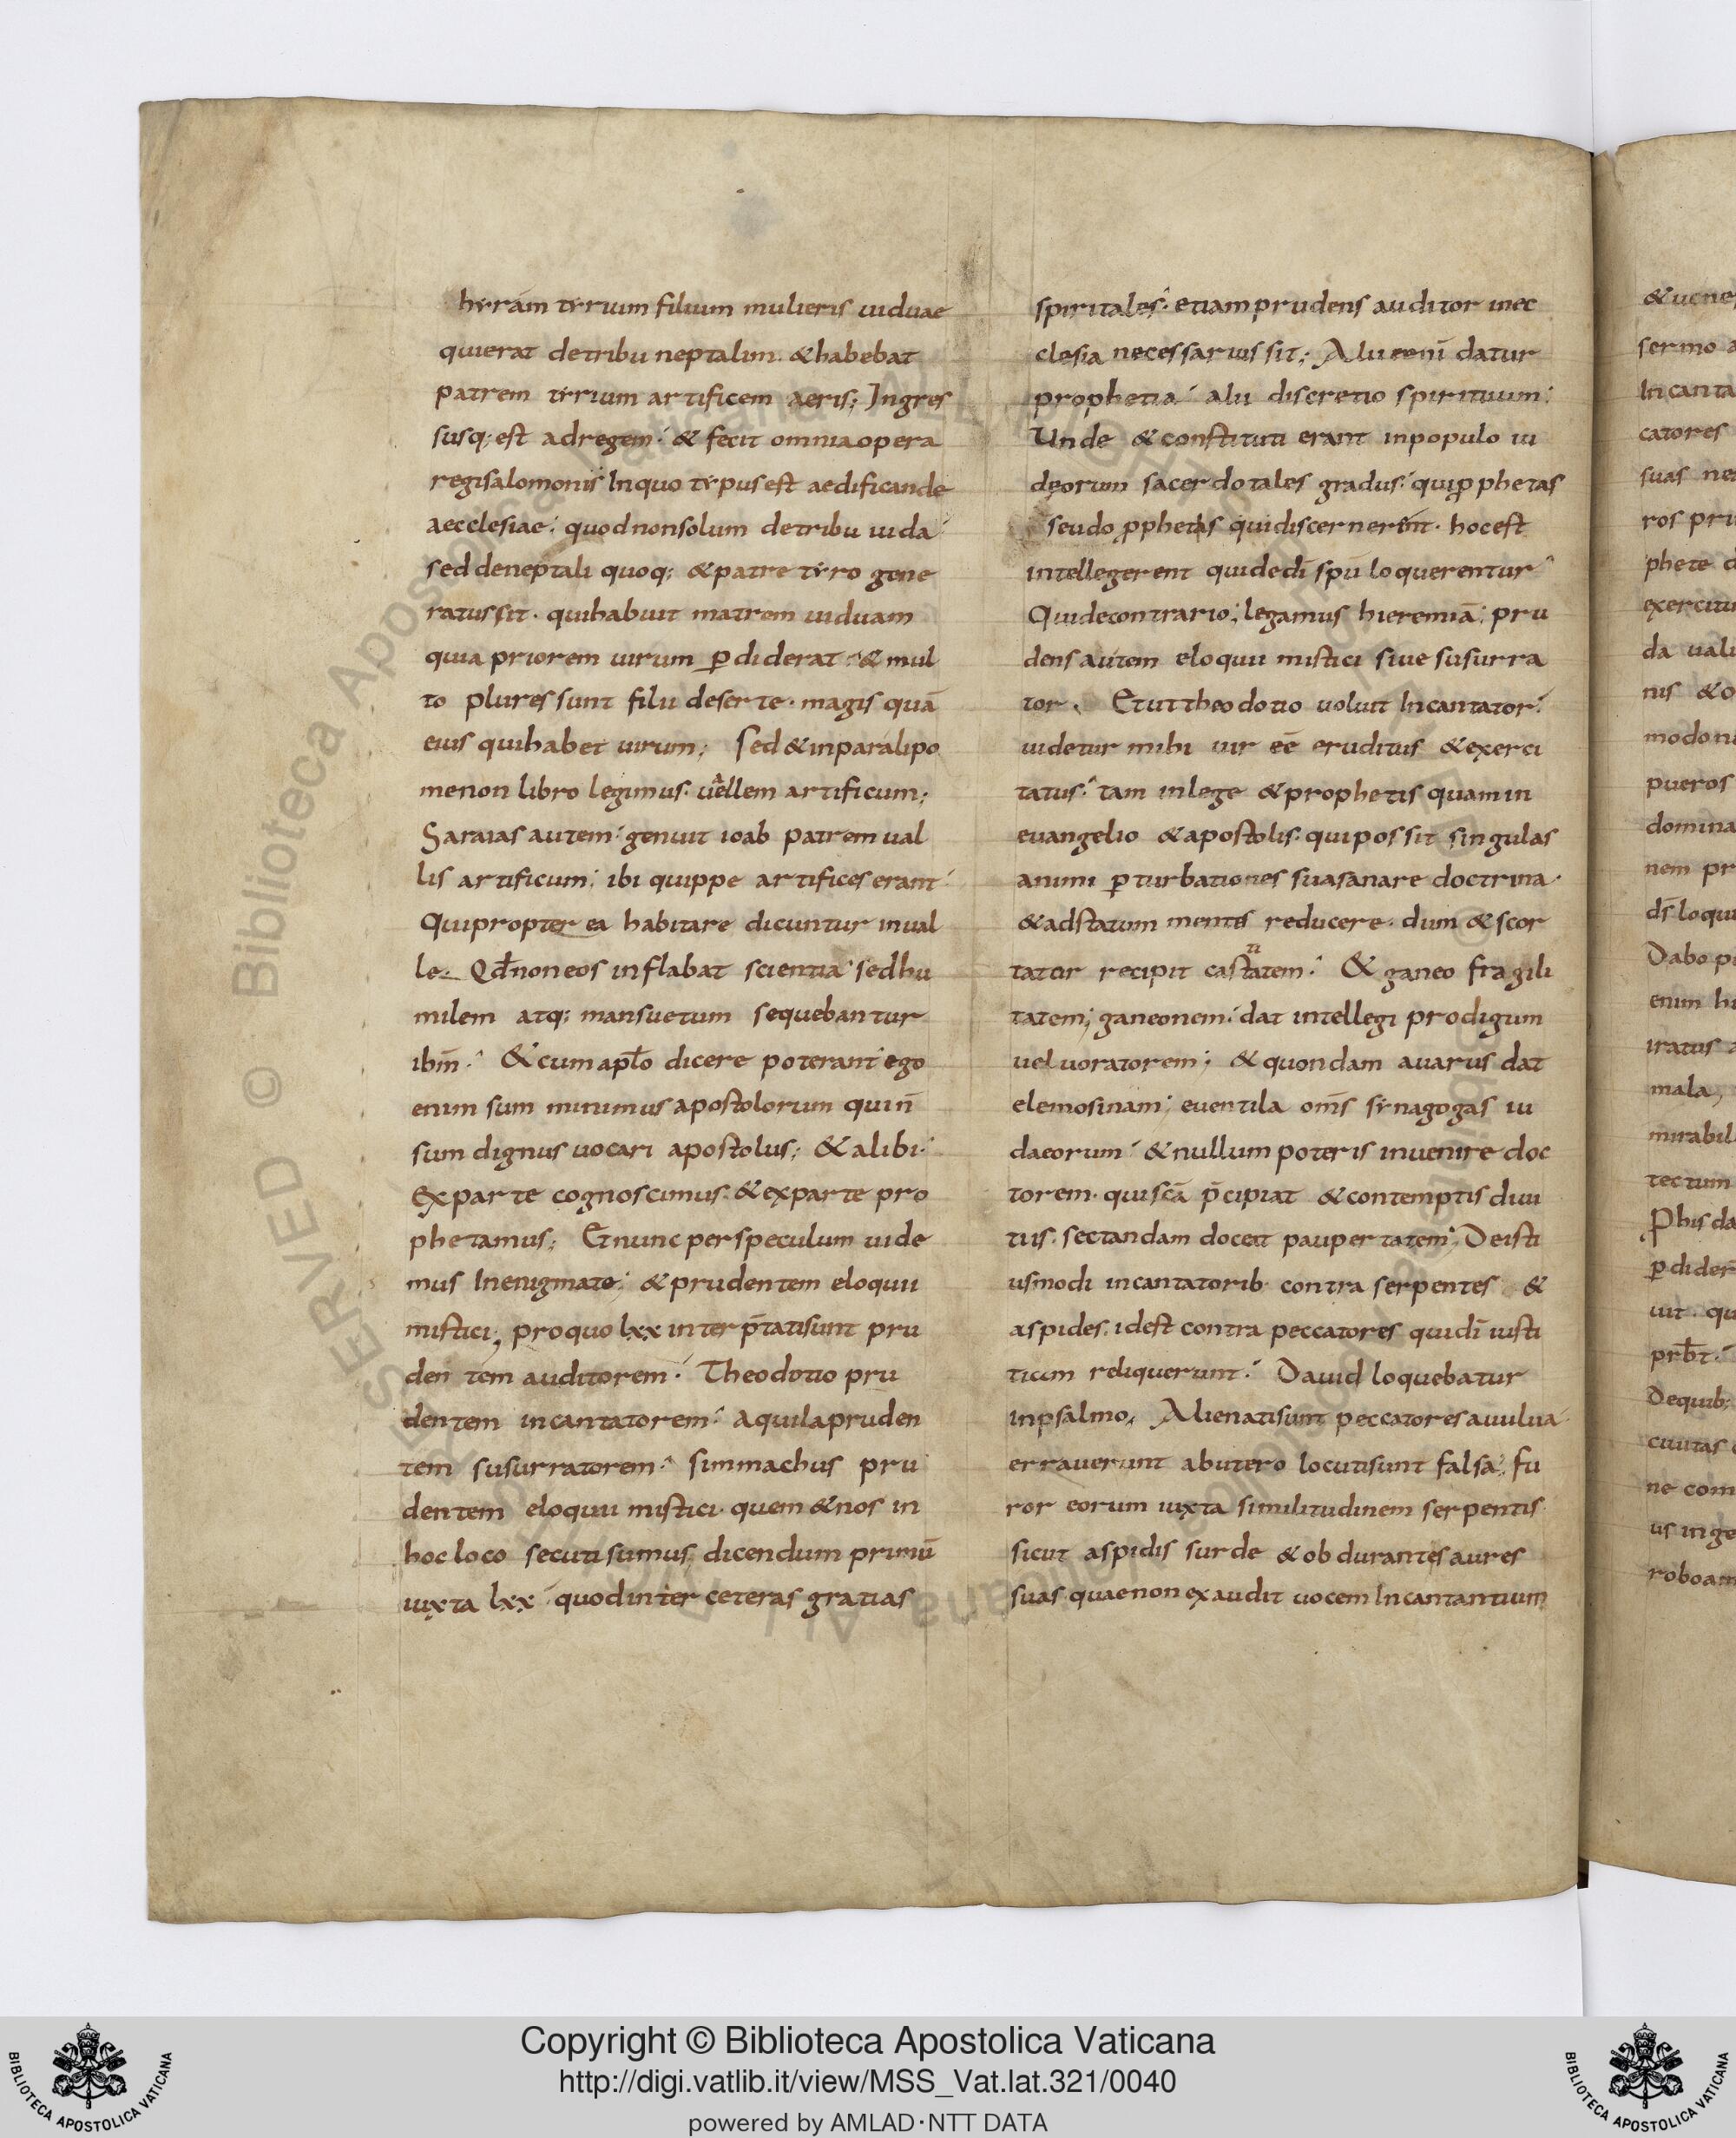 hyram tyrium filium mulieris uiduae
quierat detribu neptalim. &habebat
patrem tyrium artificem aeris; Ingres
susq; est adregem. & fecit omnia opera
regisalomonis Inquo typus est aedificande
aecclesiae. quod non solum detribu iuda
sed deneptali quoq; & patre tyro gene
ratus sit. quihabuit matrem uiduam
quia priorem uirum ꝑdiderat. & mul
to plures sunt filii deserte. magis quā
eius quihabet uirum; Sed & inparalipo
menon libro legimus. uallem artificum;
Saraias autem. genuit ioab patrem ual
lis artificum; ibi quippe artifices erant.
Quipropter ea habitare dicuntur inual
le. Qđ non eos inflabat scientia sed hu
milem atq; mansuetum sequebantur
ibm̄. & cum apło dicere poterant ego
enim sum minimus apostolorum quin̄
sum dignus uocari apostolus; & alibi.
Exparte cognoscimus. & exparte pro
phetamus; Etnunc perspeculum uide
mus Inenigmate; & prudentem eloquii
mistici, proquo lxx interp̄tatisunt pru
dentem auditorem. Theodotio pru
dentem incantatorem. aquila pruden
tem susurratorem. simmachus pru
dentem eloquii mistici. quem & nos in
hoc loco secuti sumus, dicendum primū
iuxta lxx quodinter ceteras gratias
spiritales. etiam prudens auditor inec
clesia necessarius sit; Alii enī datur
prophetia. alii discretio spirituum.
Unde & constituti erant inpopulo iu
deorum sacerdotales gradus. quiꝓphetas
seudoꝓphetis quidiscernerent. hoc est
intellegerent quidedī spū loquerentur
Quidecontrario; legamus hieremiā; pru
dens autem eloquii mistici siue susurra
tor. Etut theodotio uoluit Incantator.
uidetur mihi uir eē eruditus & exerci
tatus. tam inlege & prophetis quamin
euangelio & apostolis. quipossit singulas
animi ꝑturbationes suasanare doctrina.
& adstatum mentis reducere. dum & scor
tator recipit castitatem. & ganeo fragili
tatem; ganeonem. dat intellegi prodigum
uel uoratorem; & quondam auarus dat
elemosinam; euentila om̄s synagogas iu
daeorum & nullum poteris inuenire doc
torem. quiscā p̄cipiat & contemptis diui
tiis. sectandam doceat paupertatem; Deisti
usmodi incantatorib. contra serpentes &
aspides. id est contra peccatores quidī iusti
tiam reliquerunt. Dauid loquebatur
inpsalmo, Alienatisunt peccatores auulua.
errauerunt abutero locutisunt falsa; fu
ror eorum iuxta similitudinem serpentis.
sicut aspidis surde & obdurantes aures
suas quaenon exaudit uocem Incantantium
Copyright © Biblioteca Apostolica Vaticana
http://digi.vatlib.it/view/MSS_Vat.lat.321/0040
powered by AMLAD·NTT DATA